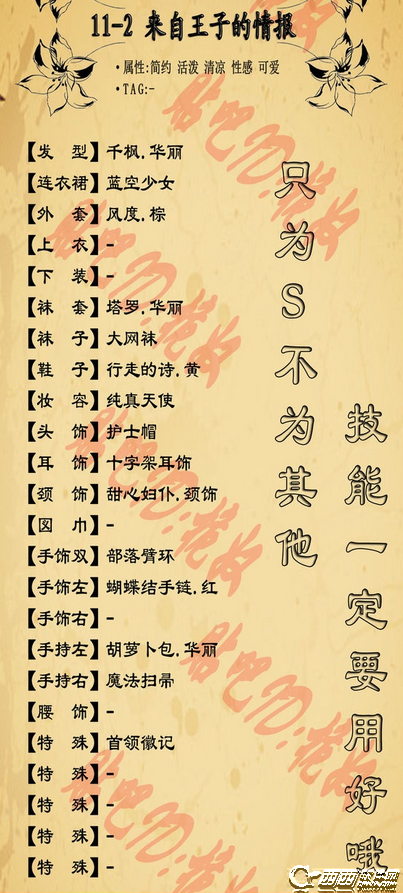 11-2 来自王子的情报
·属性:简约 活泼 清凉 性感 可爱
·TAG:-
【发 型】千枫.华丽
【连衣裙】蓝空少女
【外 套】风度.棕
【上 衣】-
【下 装】-
【袜 套】塔罗.华丽
【袜 子】大网袜
【鞋 子】行走的诗.黄
【妆 容】纯真天使
【头 饰】护士帽
【耳 饰】十字架耳饰
【颈 饰】甜心妇仆.颈饰
【围 巾】-
【手饰双】部落臂环
【手饰左】蝴蝶结手链.红
【手饰右】-
【手持左】胡萝卜包.华丽
【手持右】魔法扫帚
【腰 饰】-
【特 殊】首领徽记
【特 殊】-
【特 殊】-
【特 殊】-
【特 殊】-
只为S不为其他
技能一定要用好哦
贴吧ID:
贴吧ID:
贴吧ID:
贴吧ID:
贴吧ID: